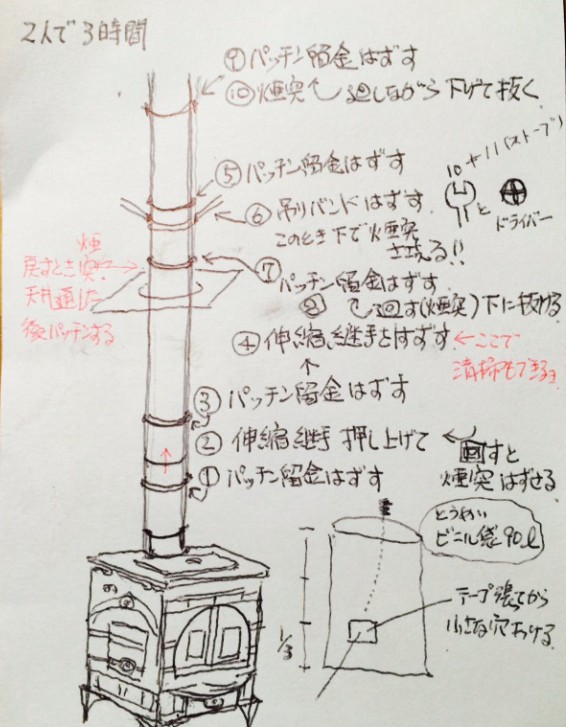 2人で3時間
⑨パッチン留金はずす
⑩煙突 廻しながら下げて抜く
⑤パッチン留金はずす
10ナット(ストーブ)
⑥吊りバンドはずす
と
ドライバー
このとき下で煙突
支える!!
⑦
パッチン留金はずす
⑧ 廻す(煙突)下に抜ける
煙
戻すとき突
天井通した
後パッチンする
④伸縮継手をはずす
←ここで
清掃もできる
↑
③パッチン留金はずす
②伸縮継手 押し上げて
回すと
煙突はずせる
①パッチン留金はずす
とうめい
ビニル袋90ℓ
テープ張ってから
小さな穴あける
1/3